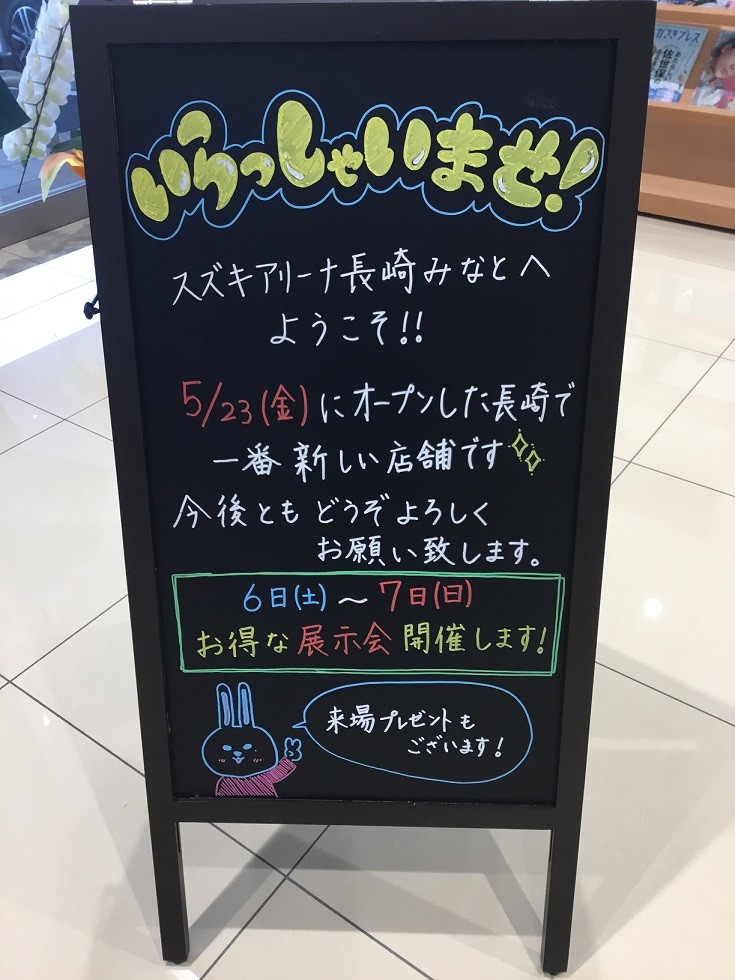 いらっしゃいませ!
スズキアリーナ長崎みなとへ
ようこそ!!
5/23(金)にオープンした長崎で
一番新しい店舗です
今後ともどうぞよろしく
お願い致します。
6日(土)～7日(日)
お得な展示会開催します!
来場プレゼントも
ございます!